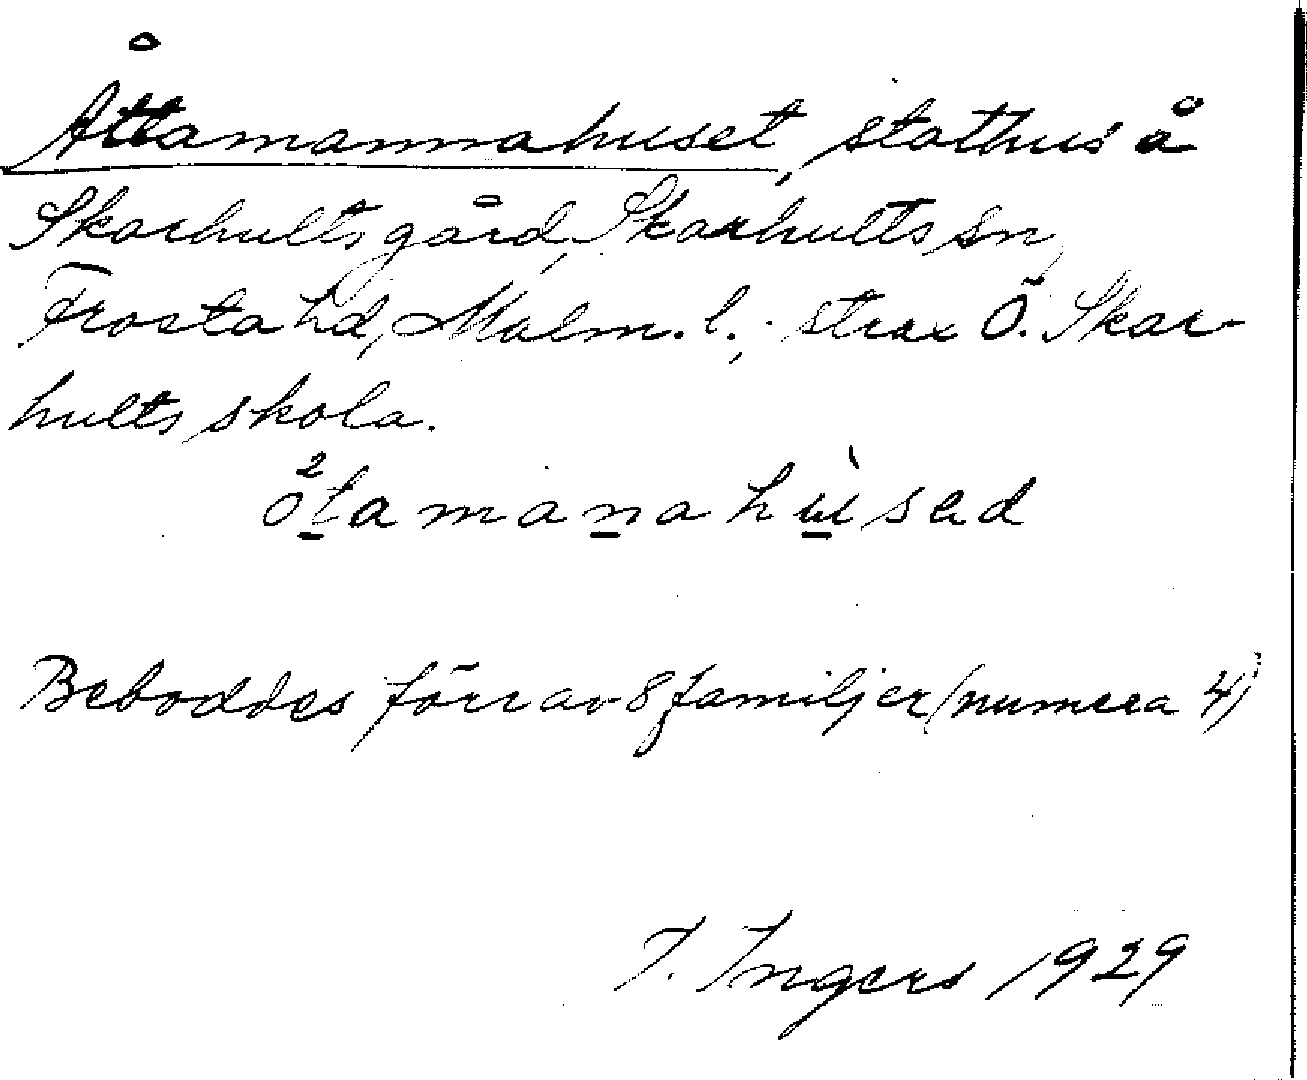 Åttamannahuset, stathus å
Skarhults gård, Skarhults sn,
Frosta hd, Malm. l.; strax Ö. Skar-
hults skola.
Beboddes förr av 8 familjer (numera 4)
I. Ingers 1929